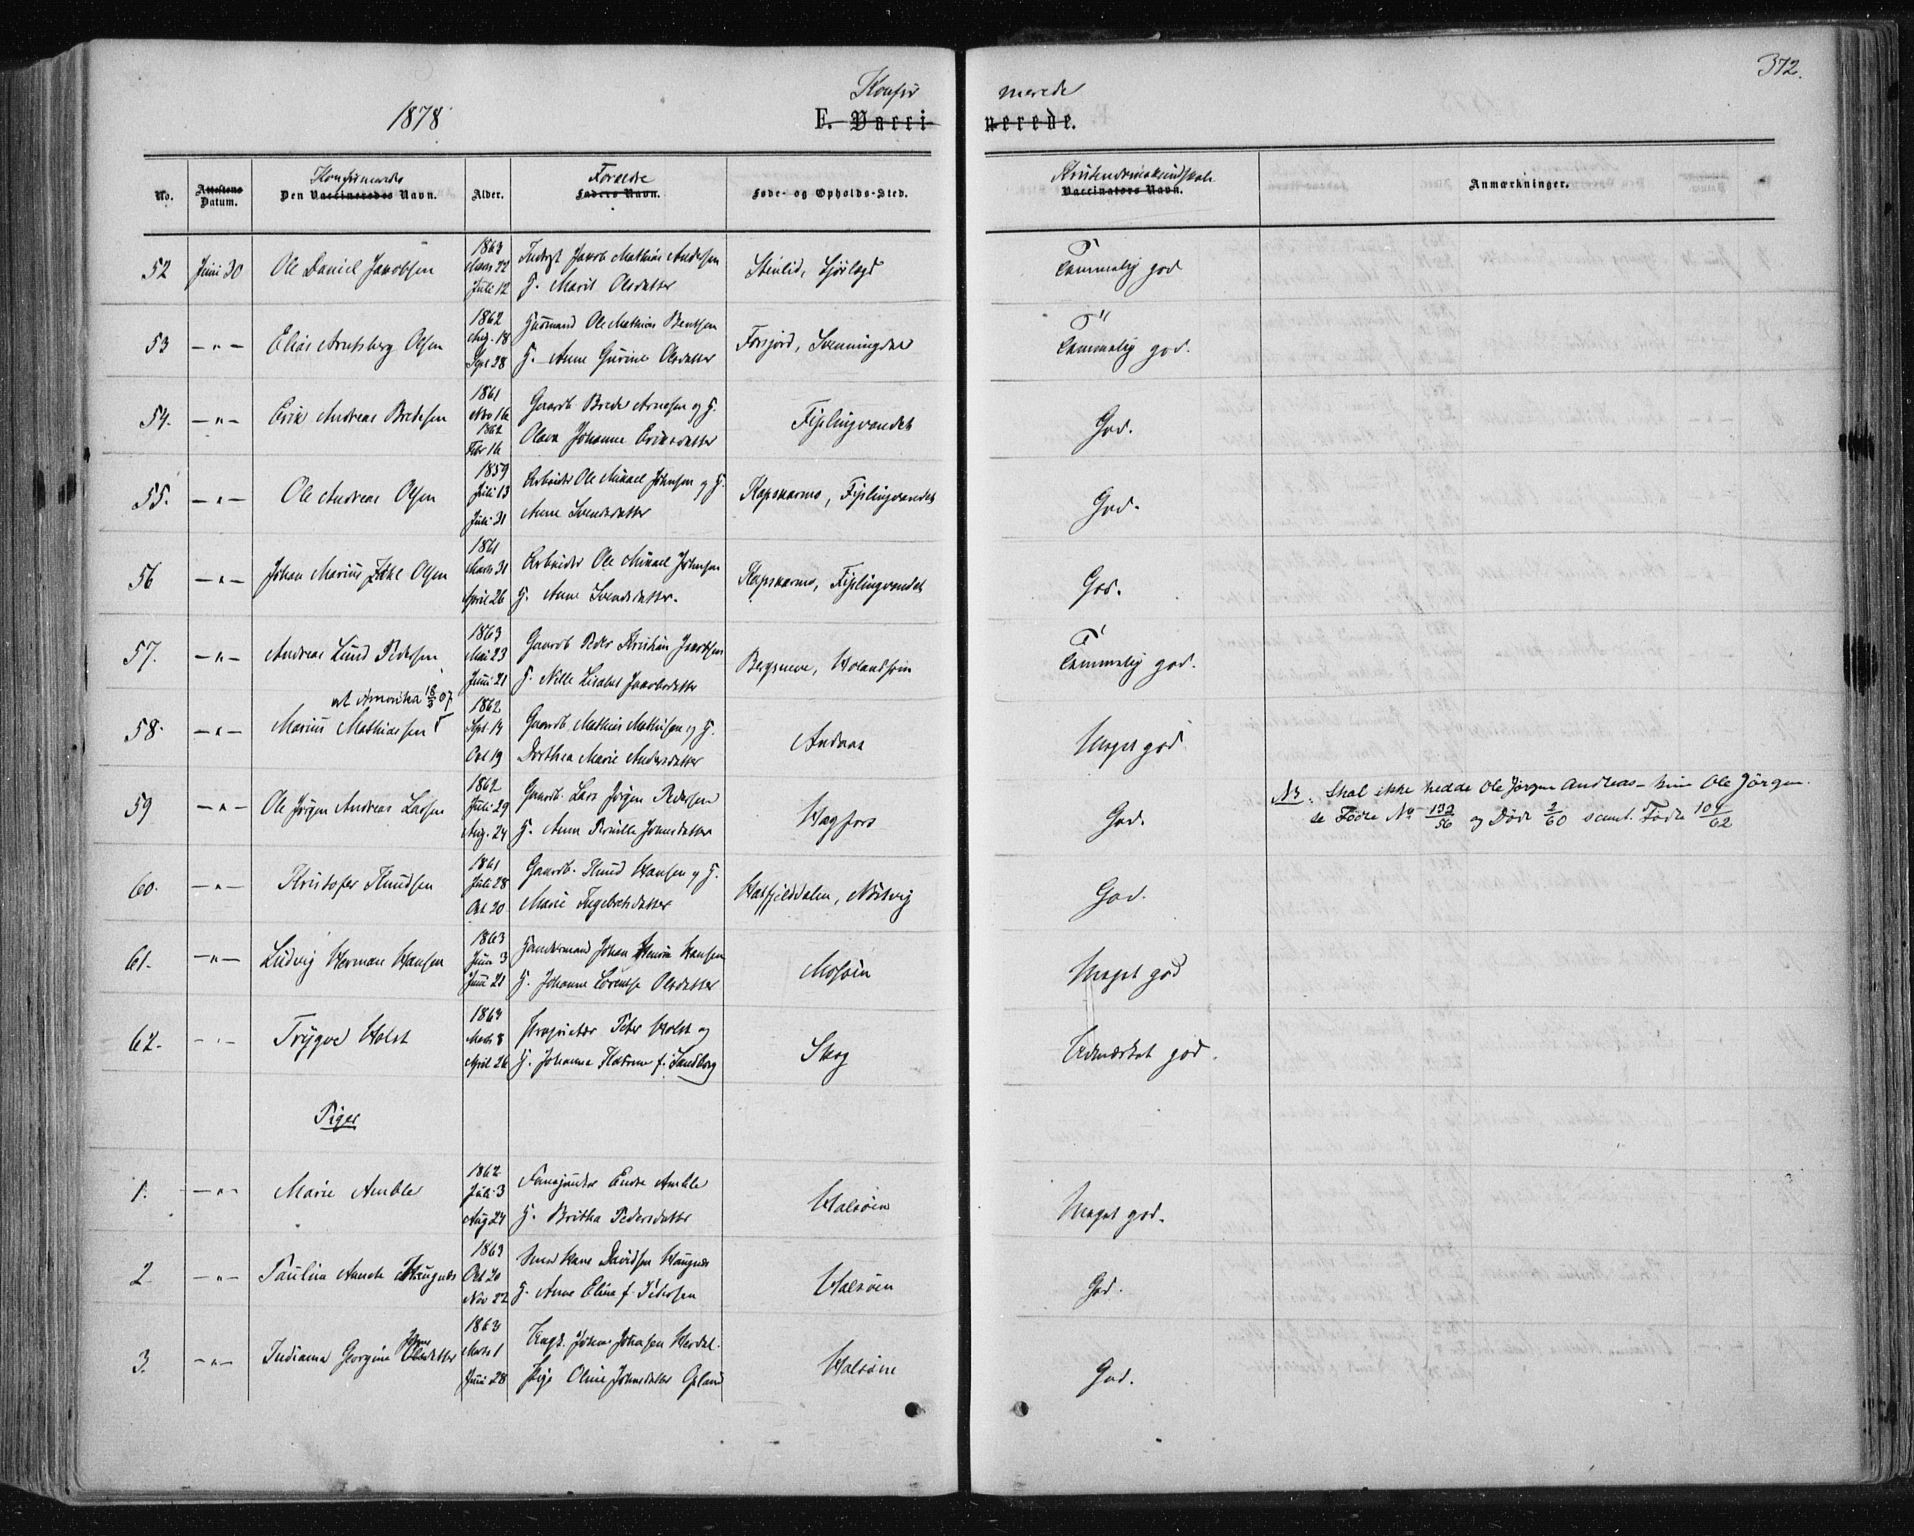 372.
1878
Konfir merede
F. Vacci nerede.
No. Attestens Datum. Konfirmerede Den Vaccineredes Navn. Alder. Forældre Faders Navn. Føde- og Opholds-Sted. Kristendomskundskab Vaccinators Navn. Anmærkninger.
1863
52 Juni 30 Ole Daniel Jakobsen Marts 22 Inderst Jakob Mathias Andersen Stenlid, Tammelig god
Juli 12 H. Marit Olsdatter
1862
53 — " — Elias Arntsberg Olsen Aug. 18 Husmand Ole Mathias Bentsen Forsjord, Svenningdal Tammelig god.
Spt 28 H. Anne Gurine Olsdatter
1861
54. — " — Erik Andreas Bredesen Nov 16 Gaardb. Brede Arnesen og H. Fiplingvandet God.
1862
Febr 16 Olava Johanne Eriksdatter
1859
55. — " — Ole Andreas Olsen Juli 13 Arbeider Ole Mikael Johnsen og H. Kapskarmo, Fiplingvandet God.
Juli 31 Anne Svendsdatter
1861
56 — " — Johan Marius Olsen Marts 31 Arbeider Ole Mikael Johnsen Kapskarmo, Fiplingvandet God.
April 26 H. Anne Svendsdatter.
1863
57. — " — Andreas Lund Pedersen Mai 23 Gaardb. Peder Kristian Jakobsen Bergsneve, Holandsvin Tammelig god.
Juni 21 H. Nille Lisabet Jakobsdatter
att Amerika 18/3 07
1862
58. — " — Marius Mathiassen Spt. 14 Gaardb. Mathias Mathisen og H. Andaas Meget god
Oct 19 Dorthea Marie Andersdatter
1862
59 — " — Ole Jørgen Andreas Larsen Juli 29 Gaardb. Lars Jørgen Pedersen Hagfors God. NB. Skal ikke hedde Ole Jørgen Andreas – kun Ole Jørgen.
Aug. 24 H. Anne Pernille Johnsdatter se Fødte No 132/56 og Døde 2/60 samt Fødte 104/62
1861
60. — " — Kristofer Knudsen Juli 28 Gaardb. Knud Hansen og H. Hatfjelddalen, Nordvig God.
Oct 20 Marie Ingebretsdatter
1863
61. — " — Ludvig Herman Hansen Juni 3 Handelsmand Johan Henrik Hansen Mosøen Meget god
Juni 21 H. Johanne Lorentse Olsdatter
1864
62. — " — Trygve Holst Marts 8 Proprietær Peter Holst og Skog Udmærket god.
April 26 H. Johanna Katrine f. Sandborg
Piger
1862
1. — " — Marie Amble Juli 3 Endre Amble Halsøen Meget god.
Aug 24 H. Britha Pedersdatter
1863
2 — " — Paulina Haugnes Oct 20 Hans Davidsen Haugnes Halsøen God.
Nov 22 H. Anne Elina f. Pedersen
1863
3. — " — Indianna Georgine Johnsdatter Marts 1 Ungk. Johan Johnsen Herdal Halsøen God.
Juni 28 Pige Oline Johnsdatter